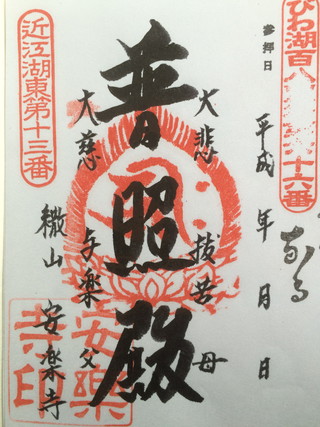 びわ湖百八
十六番
参拝日
平成 年 月 日
大悲 抜苦 母
普照殿
大慈 与楽 父
繖山 安楽寺
近江湖東第十三番
安樂
寺印